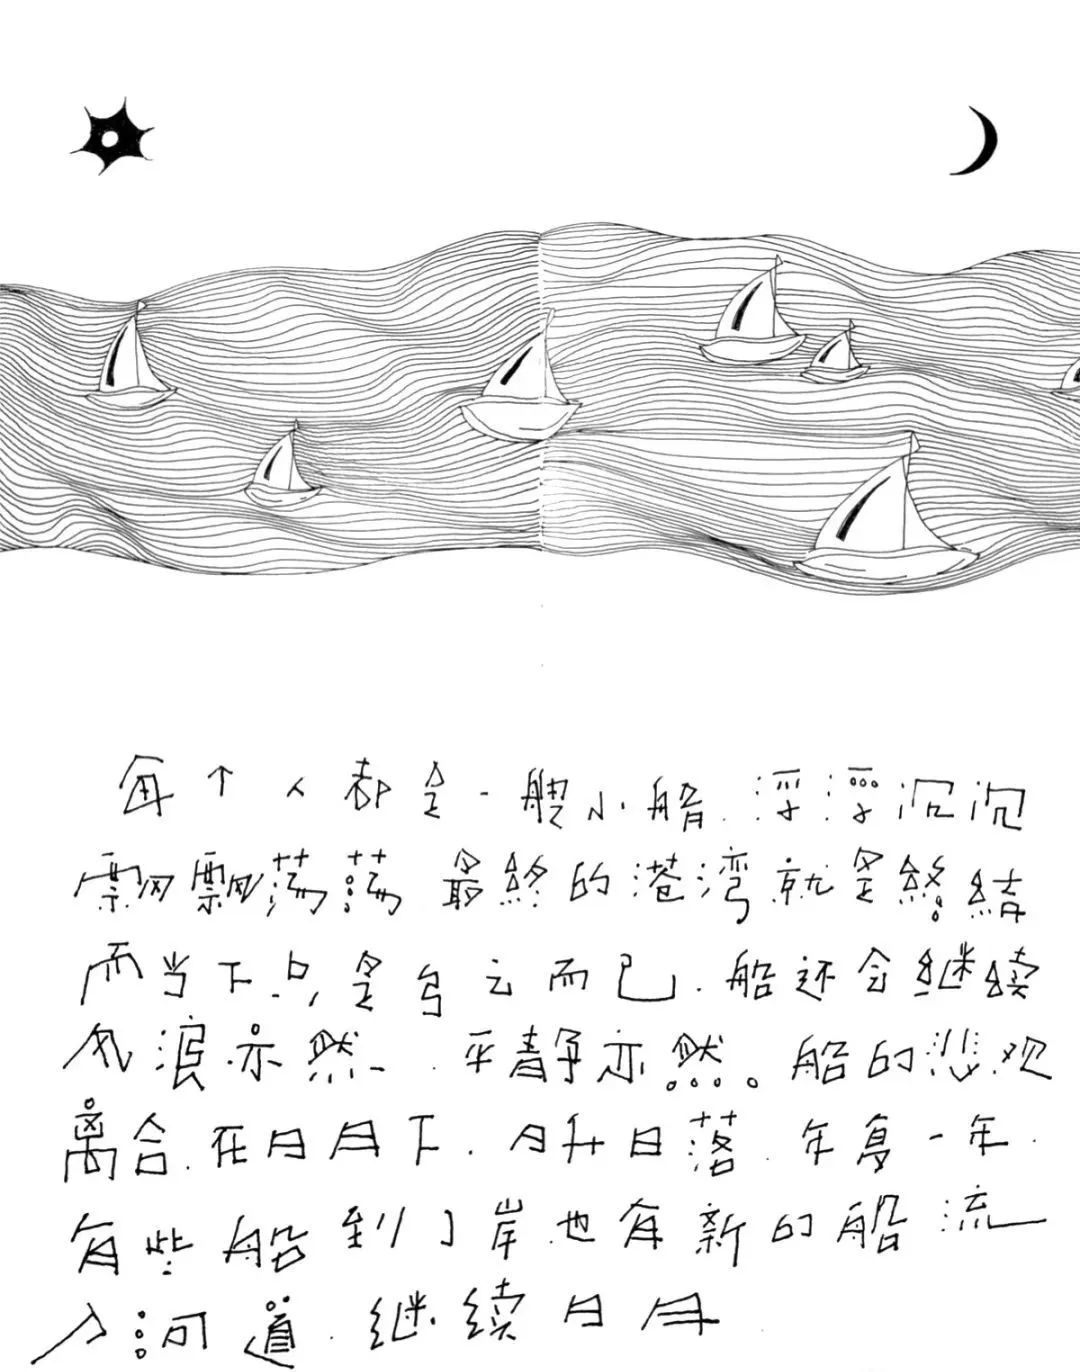 每个人都是一艘小船.浮浮沉沉
飘飘荡荡 最终的港湾就是终结
而当下.只是乌云而已.船还会继续
风浪亦然.平静亦然。船的悲观
离合.在日月下.月升日落.年复一年.
有些船到了岸.也有新的船流
入河道.继续日月